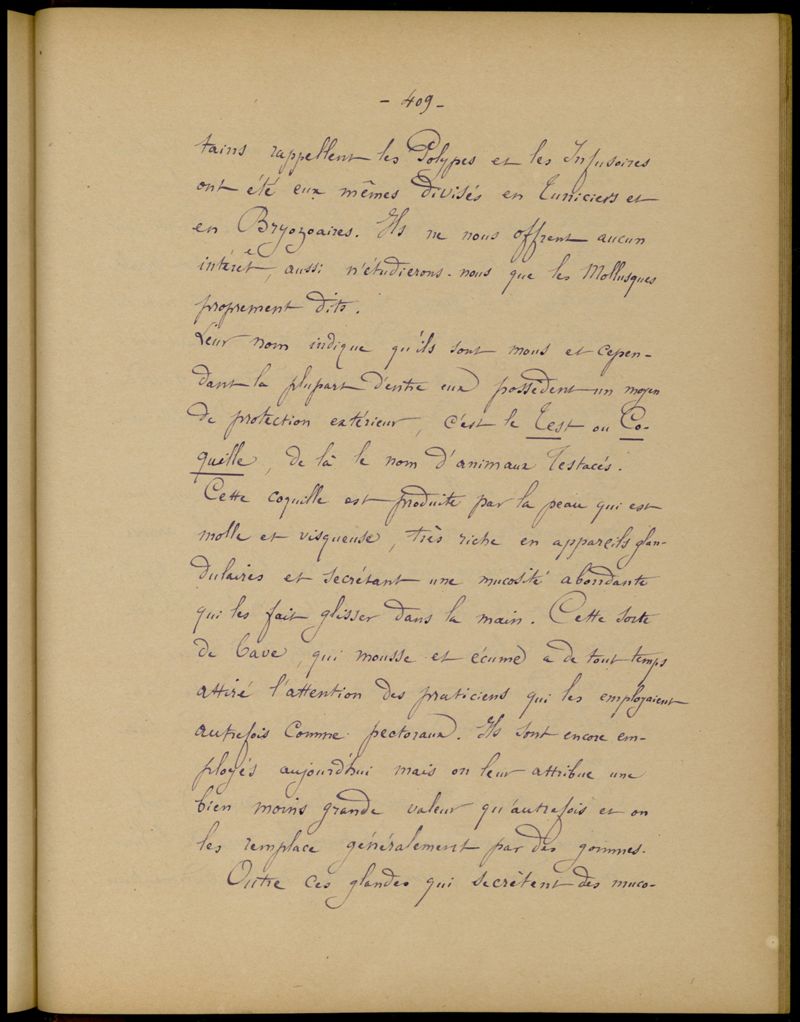 - 409 -
tains rappellent les Polypes et les Infusoires
ont été eux mêmes divisés en Tuniciers et
en Bryozoaires. Ils ne nous offrent aucun
intérêt, aussi n'étudierons-nous que les Mollusques
proprement dits.
Leur nom indique qu'ils sont mous et cepen-
dant la plupart d'entre eux possèdent un moyen
de protection extérieur, c'est le Test ou Co-
quille, de là le nom d'animaux Testacés.
Cette coquille est produite par la peau qui est
molle et visqueuse, très riche en appareils glan-
dulaires et secrétant une mucosité abondante
qui les fait glisser dans la main. Cette sorte
de bave, qui mousse et écume a de tout temps
attiré l'attention des praticiens qui les employaient
autrefois comme pectoraux. Ils sont encore em-
ployés aujourd'hui mais on leur attribue une
bien moins grande valeur qu'autrefois et on
les remplace généralement par des gommes.
Outre ces glandes qui secrètent des muco-